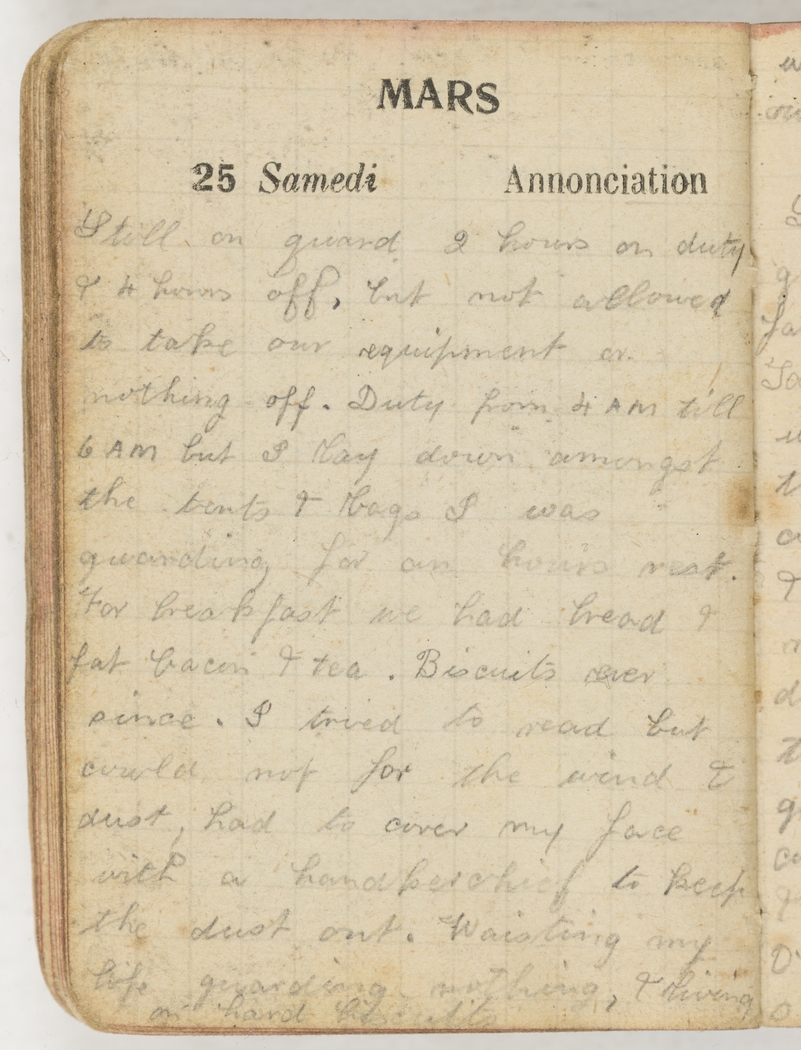 MARS
25 Samedi Annonciation
Still on guard 2 hours on duty
& 4 hours off, but not allowed
to take our equipment or
nothing off. Duty from 4 AM till
6 AM but I lay down amongst
the tents & bags I was
guarding for an hours rest.
For breakfast we had bread &
fat bacon & tea. Biscuits ever
since. I tried to read but
could not for the wind &
dust, had to cover my face
with a handkerchief to keep
the dust out. Waisting my
life guarding nothing, & living
on hard biscuits